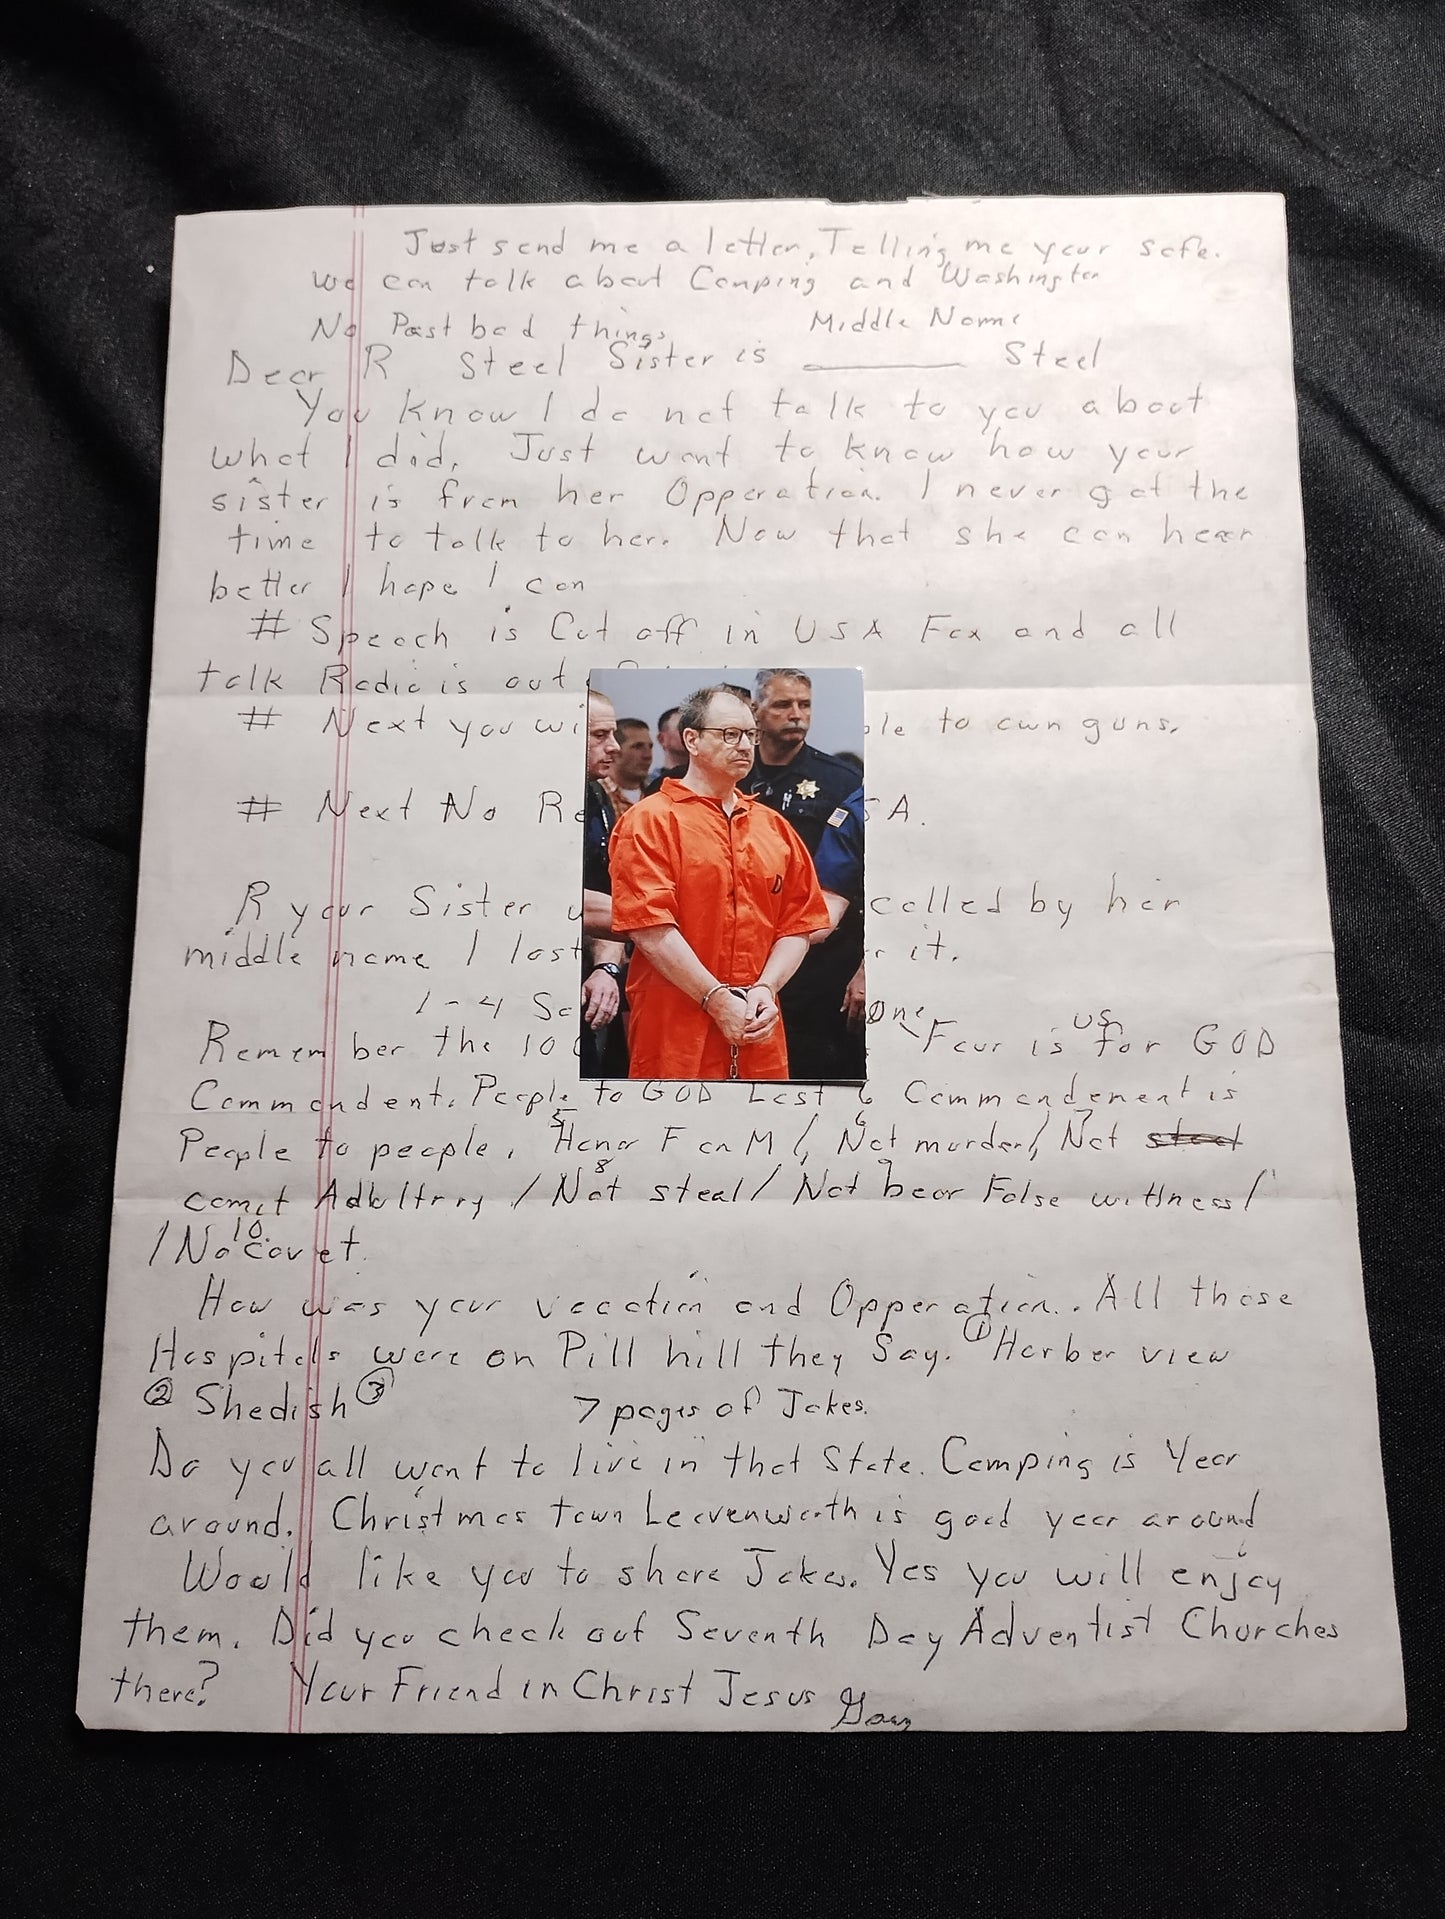 Just send me a letter, Telling me your safe.
we can talk about Camping and Washington
No Past bad things
Middle Name
Dear R Steel Sister is ______ Steel
You Know I do not talk to you about
what I did. Just want to know how your
sister is from her Opperation. I never got the
time to talk to her. Now that she can hear
better I hope I can
# Speach is Cut off in USA Fox and all
talk Radio is out
# Next you wi ble to own guns.
# Next No Re SA.
R your Sister called by her
middle name I lost it.
1-4 One us
Remember the 10 Four is for GOD
Commandent. People to GOD Last 6 Commandement is
People to people. 5 Honor F an M /, 6 Not murder/ 7 Not
comit Adbltrry / 8 Not steal / 9 Not bear False wittness/
/ 10. No covet.
How was your vacation and Opperation.. All those
Hospitals were on Pill hill they Say. ① Harber view
② Shedish ③ 7 pages of Jokes.
Do you all want to live in that State. Camping is Year
around. Christmas town Leavenworth is good year around
Would like you to share Jokes. Yes you will enjoy
them. Did you check out Seventh Day Adventist Churches
there? Your Friend in Christ Jesus Gary